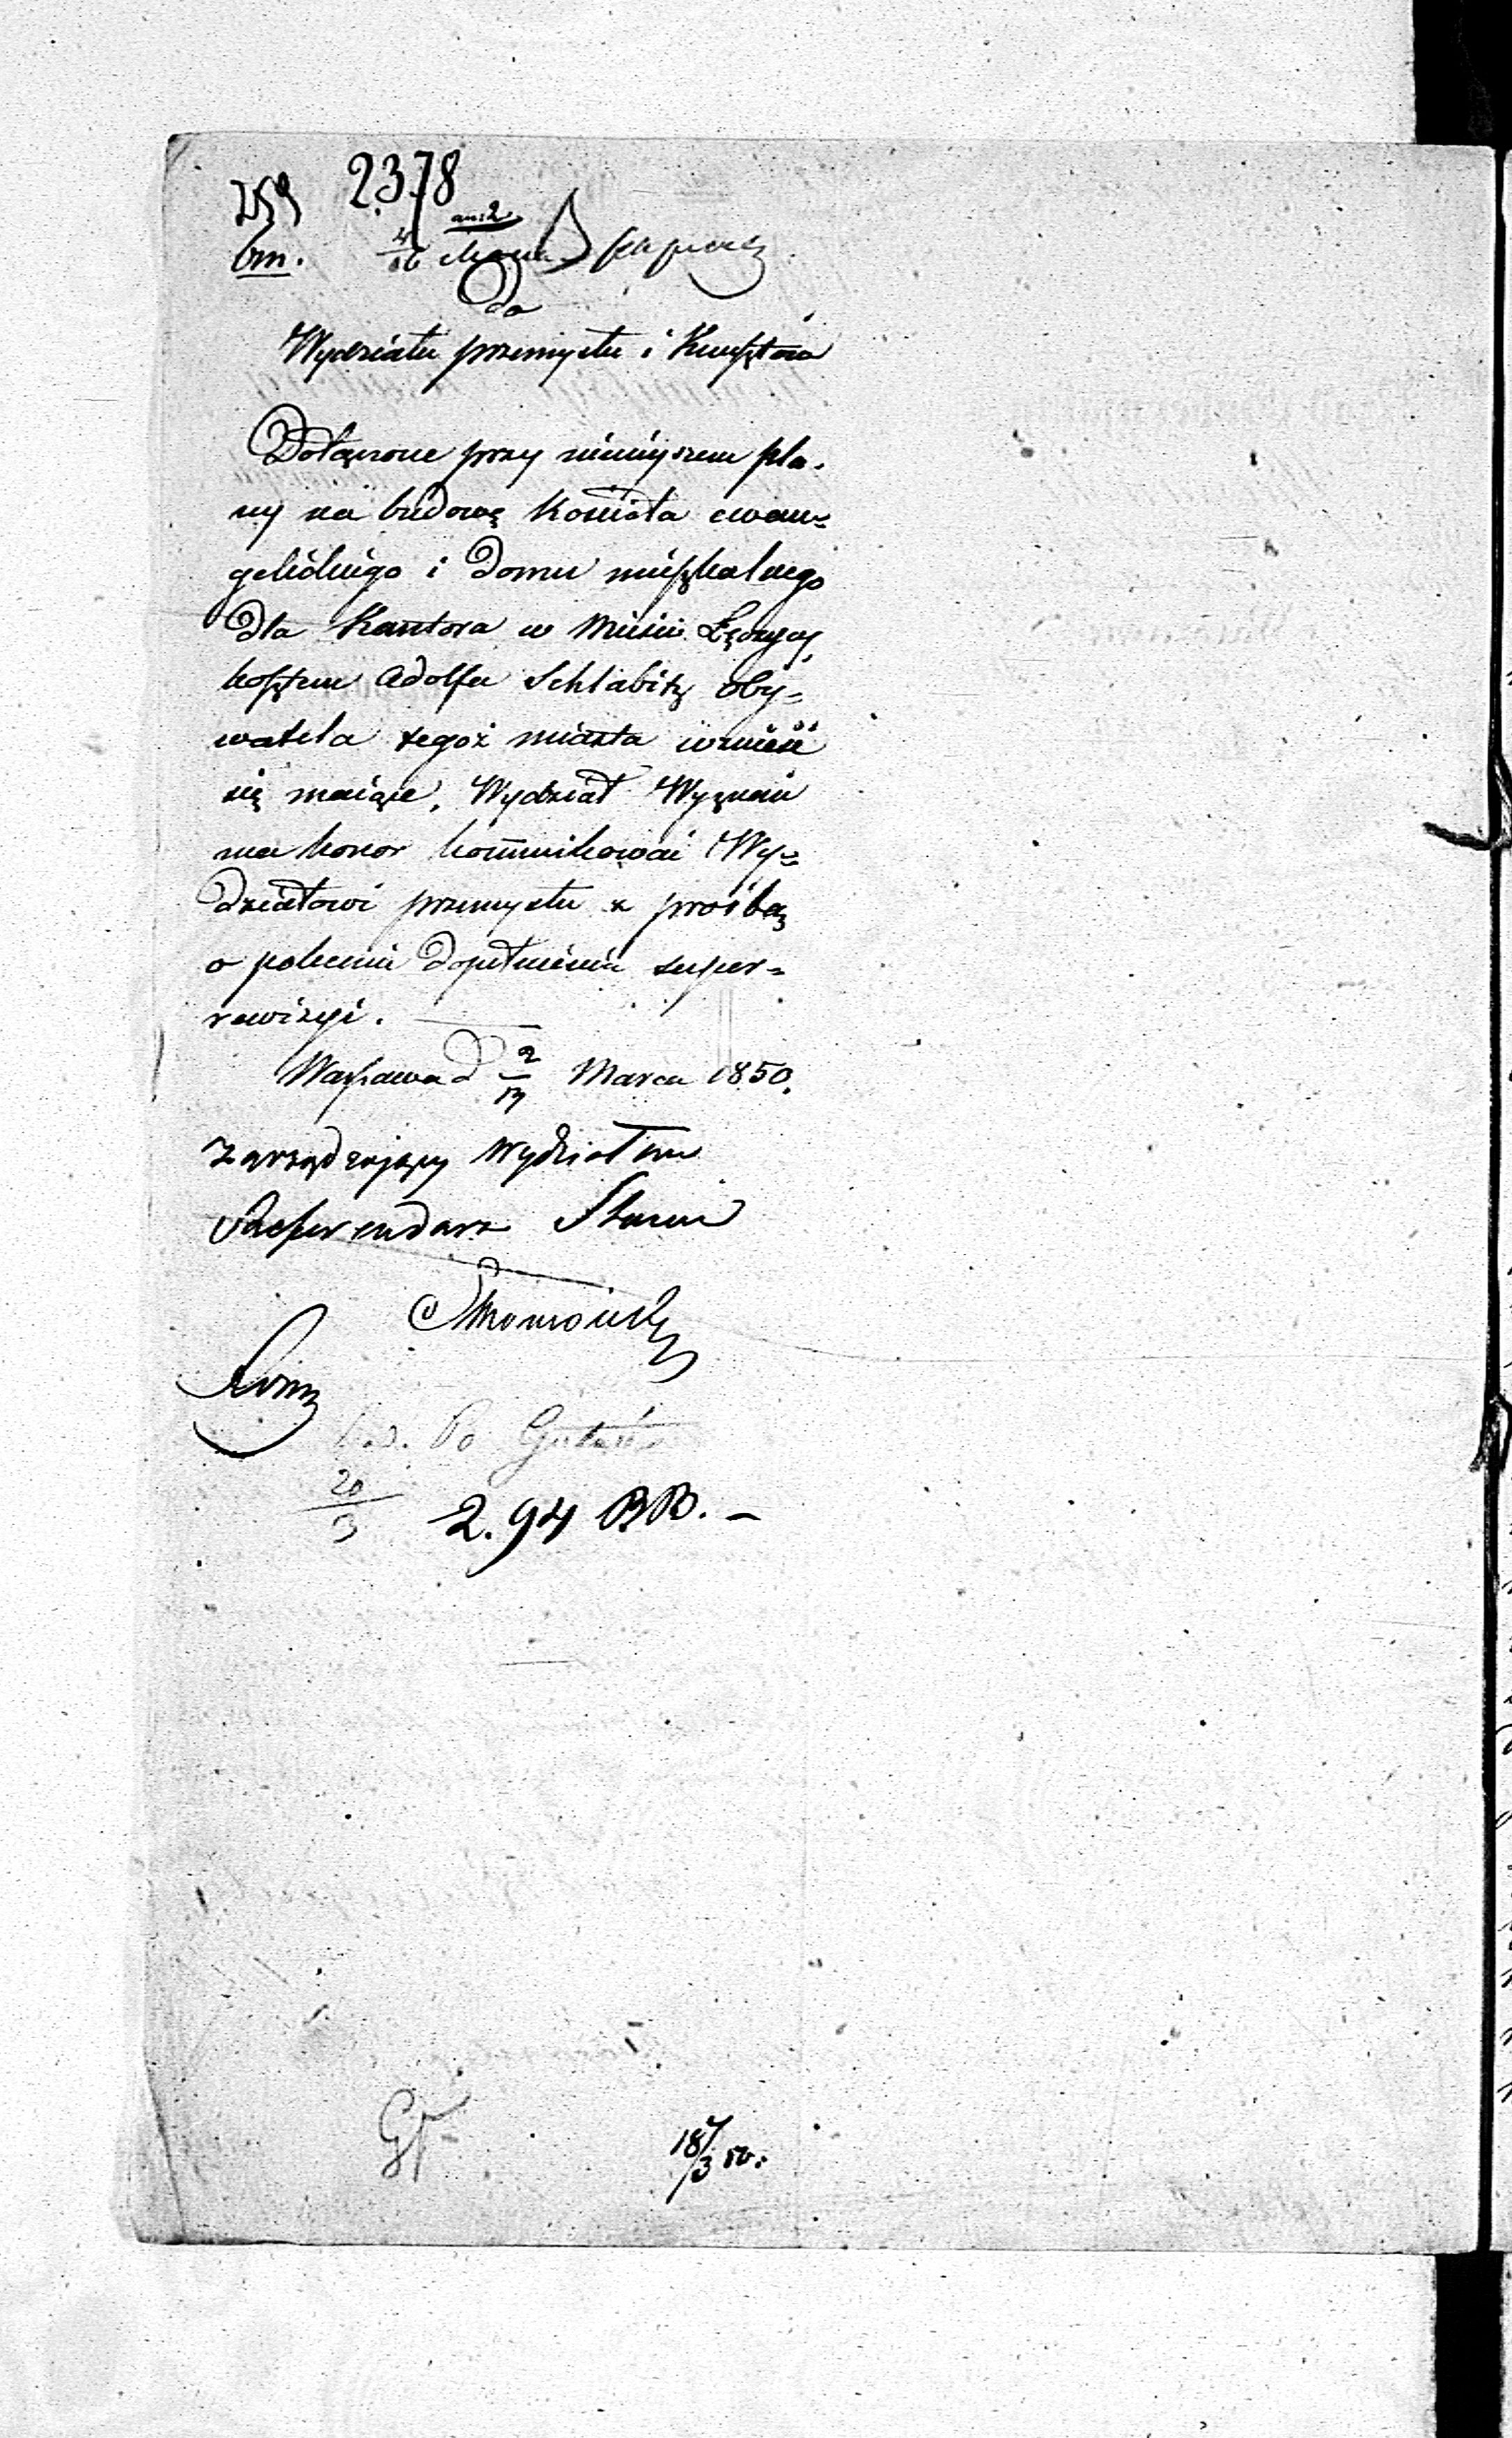 259 2378
bm. 4/16 Marca an: 2
Do
Wydziału przemysłu i Kunsztów
Dołączone przy niniejszem pla-
ny na budowę Kościoła ewan-
gelickiego i Domu mieszkalnego
dla Kantora w Mieście Łęczycy,
kosztem Adolfa Schlabitz oby-
watela tegoż miasta wznieść
się maiące, Wydział Wyznań
ma honor kom̄unikować Wy-
działowi przemysłu z prośbą
o polecenie dopełnienia super-
rewizyi.
Warszawa d 2/14 Marca 1850.
Zarządzający Wydziałem
Referendarz Stanu
20/3 2.94 BB. —
18/3 50.